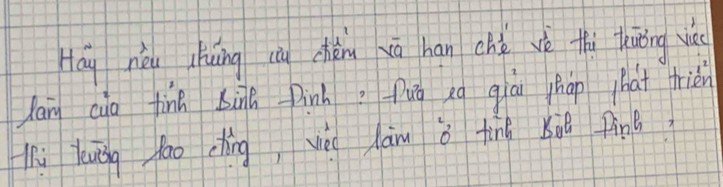 Hãy nêu những ưu điểm và hạn chế về thị trường việc
làm của tỉnh Bình Định ? Đưa ra giải pháp phát triển
thị trường lao động , việc làm ở tỉnh Bình Định ?